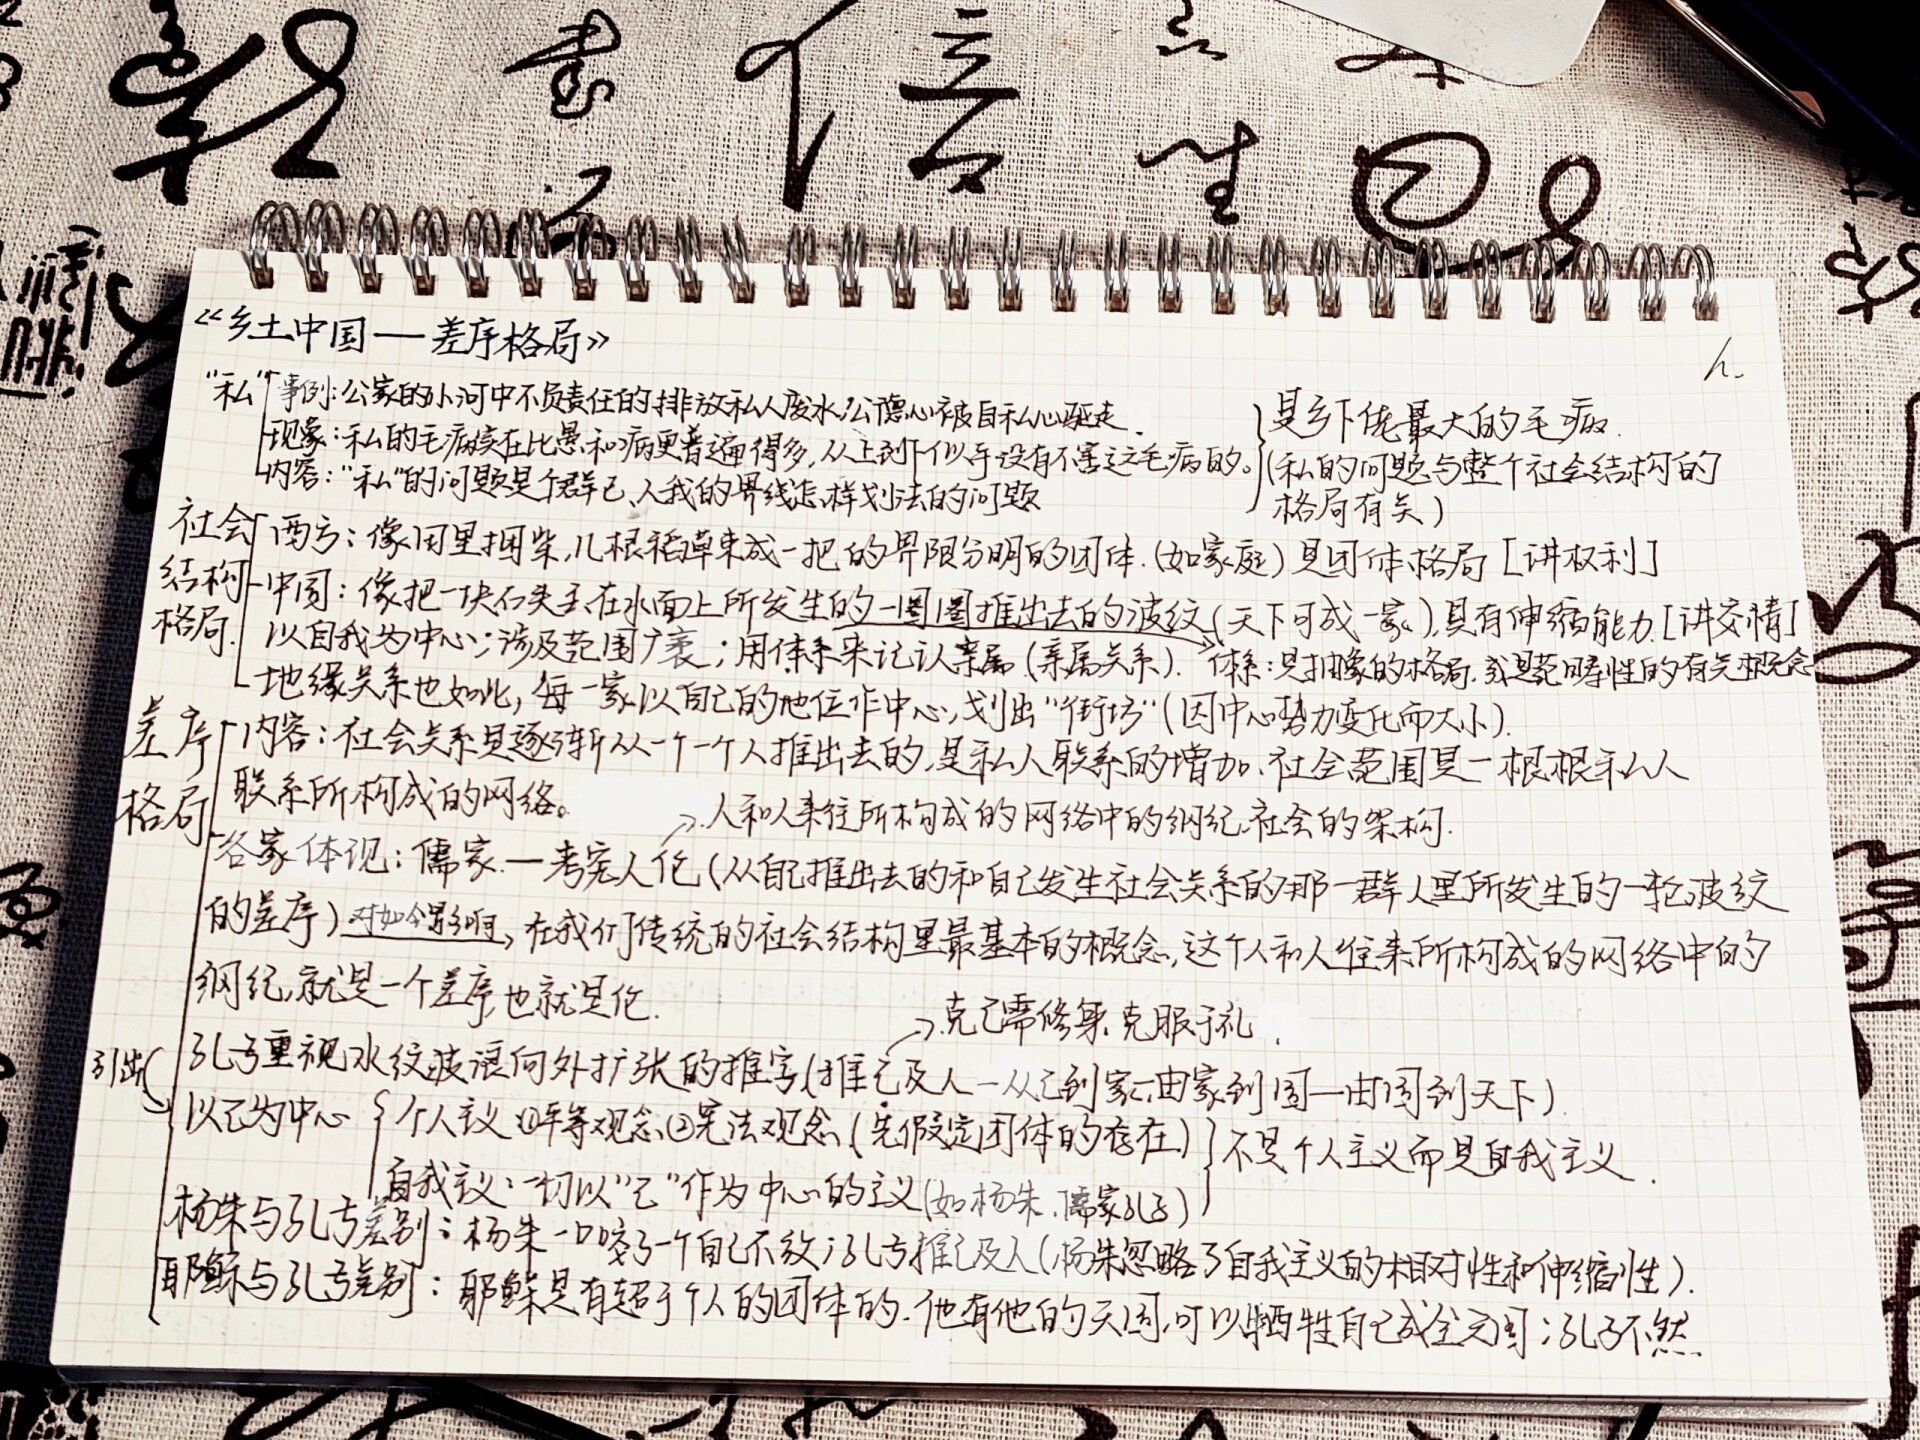 《乡土中国——差序格局》
h.
"私" 事例:公家的小河中不负责任的排放私人废水,公德心被自私心驱走.
现象:私的毛病实在比愚和病更普遍得多,从上到下似乎没有不害这毛病的。
内容:"私"的问题是个群己、人我的界线怎样划法的问题
是乡下佬最大的毛病.
(私的问题与整个社会结构的
格局有关)
社会
结构
格局.
西方:像田里捆柴,几根稻草束成一把的界限分明的团体.(如家庭)是团体格局[讲权利]
中国:像把一块石头丢在水面上所发生的一圈圈推出去的波纹(天下可成一家),具有伸缩能力.[讲交情]
以自我为中心;涉及范围广袤;用体系来记认亲属(亲属关系). 体系:是抽像的格局,或是范畴性的有关概念
地缘关系也如此,每一家以自己的地位作中心,划出"街坊"(因中心势力变化而大小).
差序
格局
内容:社会关系是逐渐从一个一个人推出去的,是私人联系的增加、社会范围是一根根私人
联系所构成的网络。
人和人来往所构成的网络中的纲纪.社会的架构.
各家体现:儒家—考究人伦(从自己推出去的和自己发生社会关系的那一群人里所发生的一轮波纹
的差序)对如今影响,在我们传统的社会结构里最基本的概念,这个人和人往来所构成的网络中的
纲纪,就是一个差序,也就是伦.
克己需修身,克服于礼.
引出
孔子重视水纹波浪向外扩张的推字(推己及人—从己到家,由家到国—由国到天下).
以己为中心
个人主义①平等观念②宪法观念(先假定团体的存在)
自我主义:一切以"己"作为中心的主义(如杨朱、儒家孔子)
不是个人主义而是自我主义.
杨朱与孔子差别:杨朱一口咬了一个自己不放;孔子推己及人(杨朱忽略了自我主义的相对性和伸缩性).
耶稣与孔子差别:耶稣是有超于个人的团体的.他有他的天国,可以牺牲自己成全天国;孔子不然.